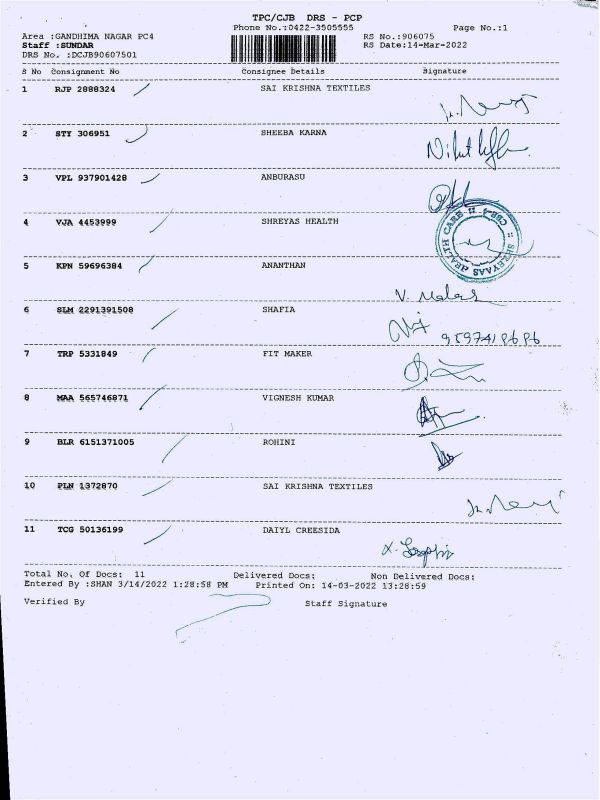 TPC/CJB DRS - PCP
Phone No.:0422-3505555 Page No.:1
Area :GANDHIMA NAGAR PC4 RS No.:906075
Staff :SUNDAR RS Date:14-Mar-2022
DRS No. :DCJB90607501
S No Consignment No Consignee Details Signature
1 RJP 2888324 SAI KRISHNA TEXTILES
2 STY 306951 SHEEBA KARNA
3 VPL 937901428 ANBURASU
4 VJA 4453999 SHREYAS HEALTH
SHREYAAS HEALTH CARE :: CBE-4 ::
5 KPN 59696384 ANANTHAN
V. Malar
6 SLM 2291391508 SHAFIA
9597419686
7 TRP 5331849 FIT MAKER
8 MAA 565746871 VIGNESH KUMAR
9 BLR 6151371005 ROHINI
10 PLN 1372870 SAI KRISHNA TEXTILES
11 TCG 50136199 DAIYL CREESIDA
Total No. Of Docs: 11 Delivered Docs: Non Delivered Docs:
Entered By :SHAN 3/14/2022 1:28:58 PM Printed On: 14-03-2022 13:28:59
Verified By Staff Signature